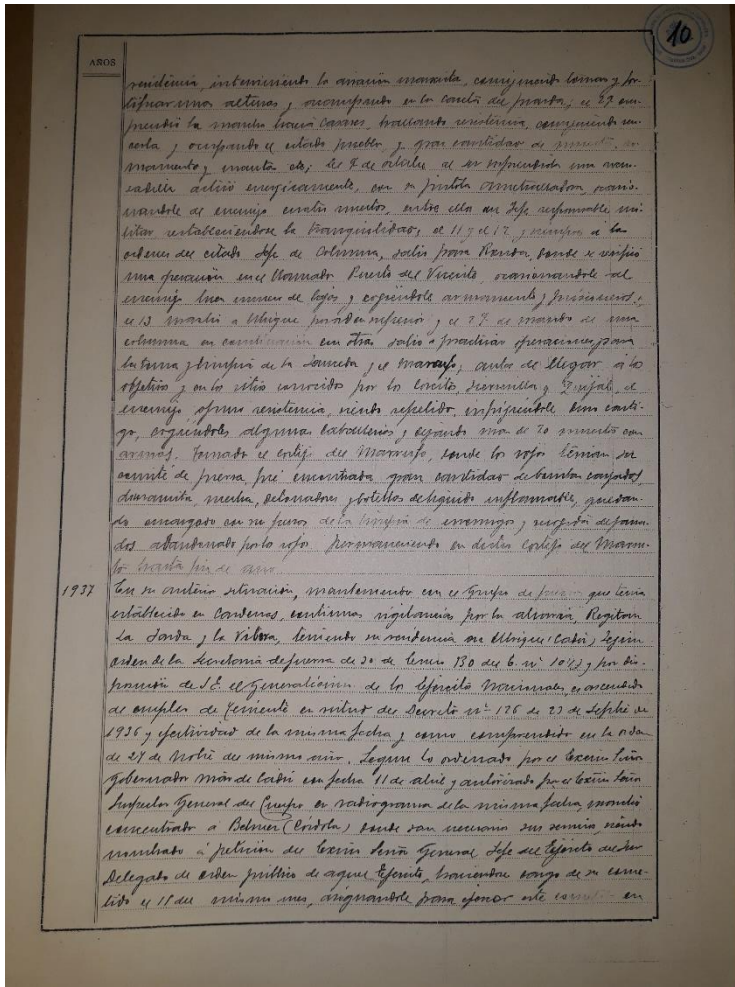 10
AÑOS
residencia, interviniendo la aviación marxista, consiguiendo tomar y for-
tificar unas alturas y acampando en la la del ; el 27 em-
prendió la marcha hacia Casares, hallando resistencia, consiguiendo ven-
cerla y ocupando el citado pueblo y gran cantidad de , ar-
mamento y mantas etc; El 7 de octubre al ser sorprendida una
actuó energicamente, con su pistola ametralladora, ocasio-
nandole al enemigo cuatro muertos, entre ellos un Jefe responsable mi-
litar restableciendose la tranquilidad; el 11 y el 12 y siempre a las
ordenes del citado Jefe de Columna, salió para Ronda, donde se verificó
una operación en el llamado Puerto del Viento, ocasionandole al
enemigo buen numero de bajas y cogiendole armamento y prisioneros;
el 13 marchó a Ubrique y el 27 de mando de una
columna en combinación con otras salió a practicar operaciones para
la toma y limpieza de la Sauceda y el Marrufo, antes de llegar á los
objetivos y en los sitios conocidos por los , y , el
enemigo opuso resistencia, siendo repelido, infrigiendole duro casti-
go, cogiendoles algunas caballerias y dejando mas de 20 muertos con
armas. Tomado el cortijo del Marrufo, donde los rojos tenian su
comité de guerra, fué encontrada gran cantidad de bombas cargadas,
dinamita mecha, detonadores y botellas de liquido inflamable, quedan-
do encargado con su fuerza de la limpieza de enemigos y recogida de gana-
dos abandonado por los rojos permaneciendo en dicho Cortijo del Marru-
fo hasta fin de año
1937
En su anterior situación, manteniendo con el Grupo de fuerzas que tenia
establecido en Cardenas, continuas vigilancias por la , 
La Jarda y la , teniendo su residencia en Ubrique (Cadiz) Según
orden de la Secretaria de Guerra de 30 de Enero 130 del B. nº y por dis-
posición de S.E. el Generalisimo de los Ejércitos Nacionales, es ascendido
al empleo de Teniente en virtud del Decreto nº 126 de 23 de Septbre de
1936 y efectividad de la misma fecha y como comprendido en la orden
de 27 de Nobre del mismo año. Segun lo ordenado por el Excmo Señor
Gobernador Militar de Cadiz con fecha 11 de abril y autorizado por el Excmo Señor
Inspector General del Cuerpo en radiograma de la misma fecha, marchó
concentrado á Belmez (Cordoba) donde son necesarios sus servicios, siendo
nombrado á petición del Excmo Señor General Jefe del Ejército del Sur
Delegado de orden público de aquel Ejercito, haciendose cargo de su come-
tido el 18 del mismo mes, asignandole para ejercer este cometido en